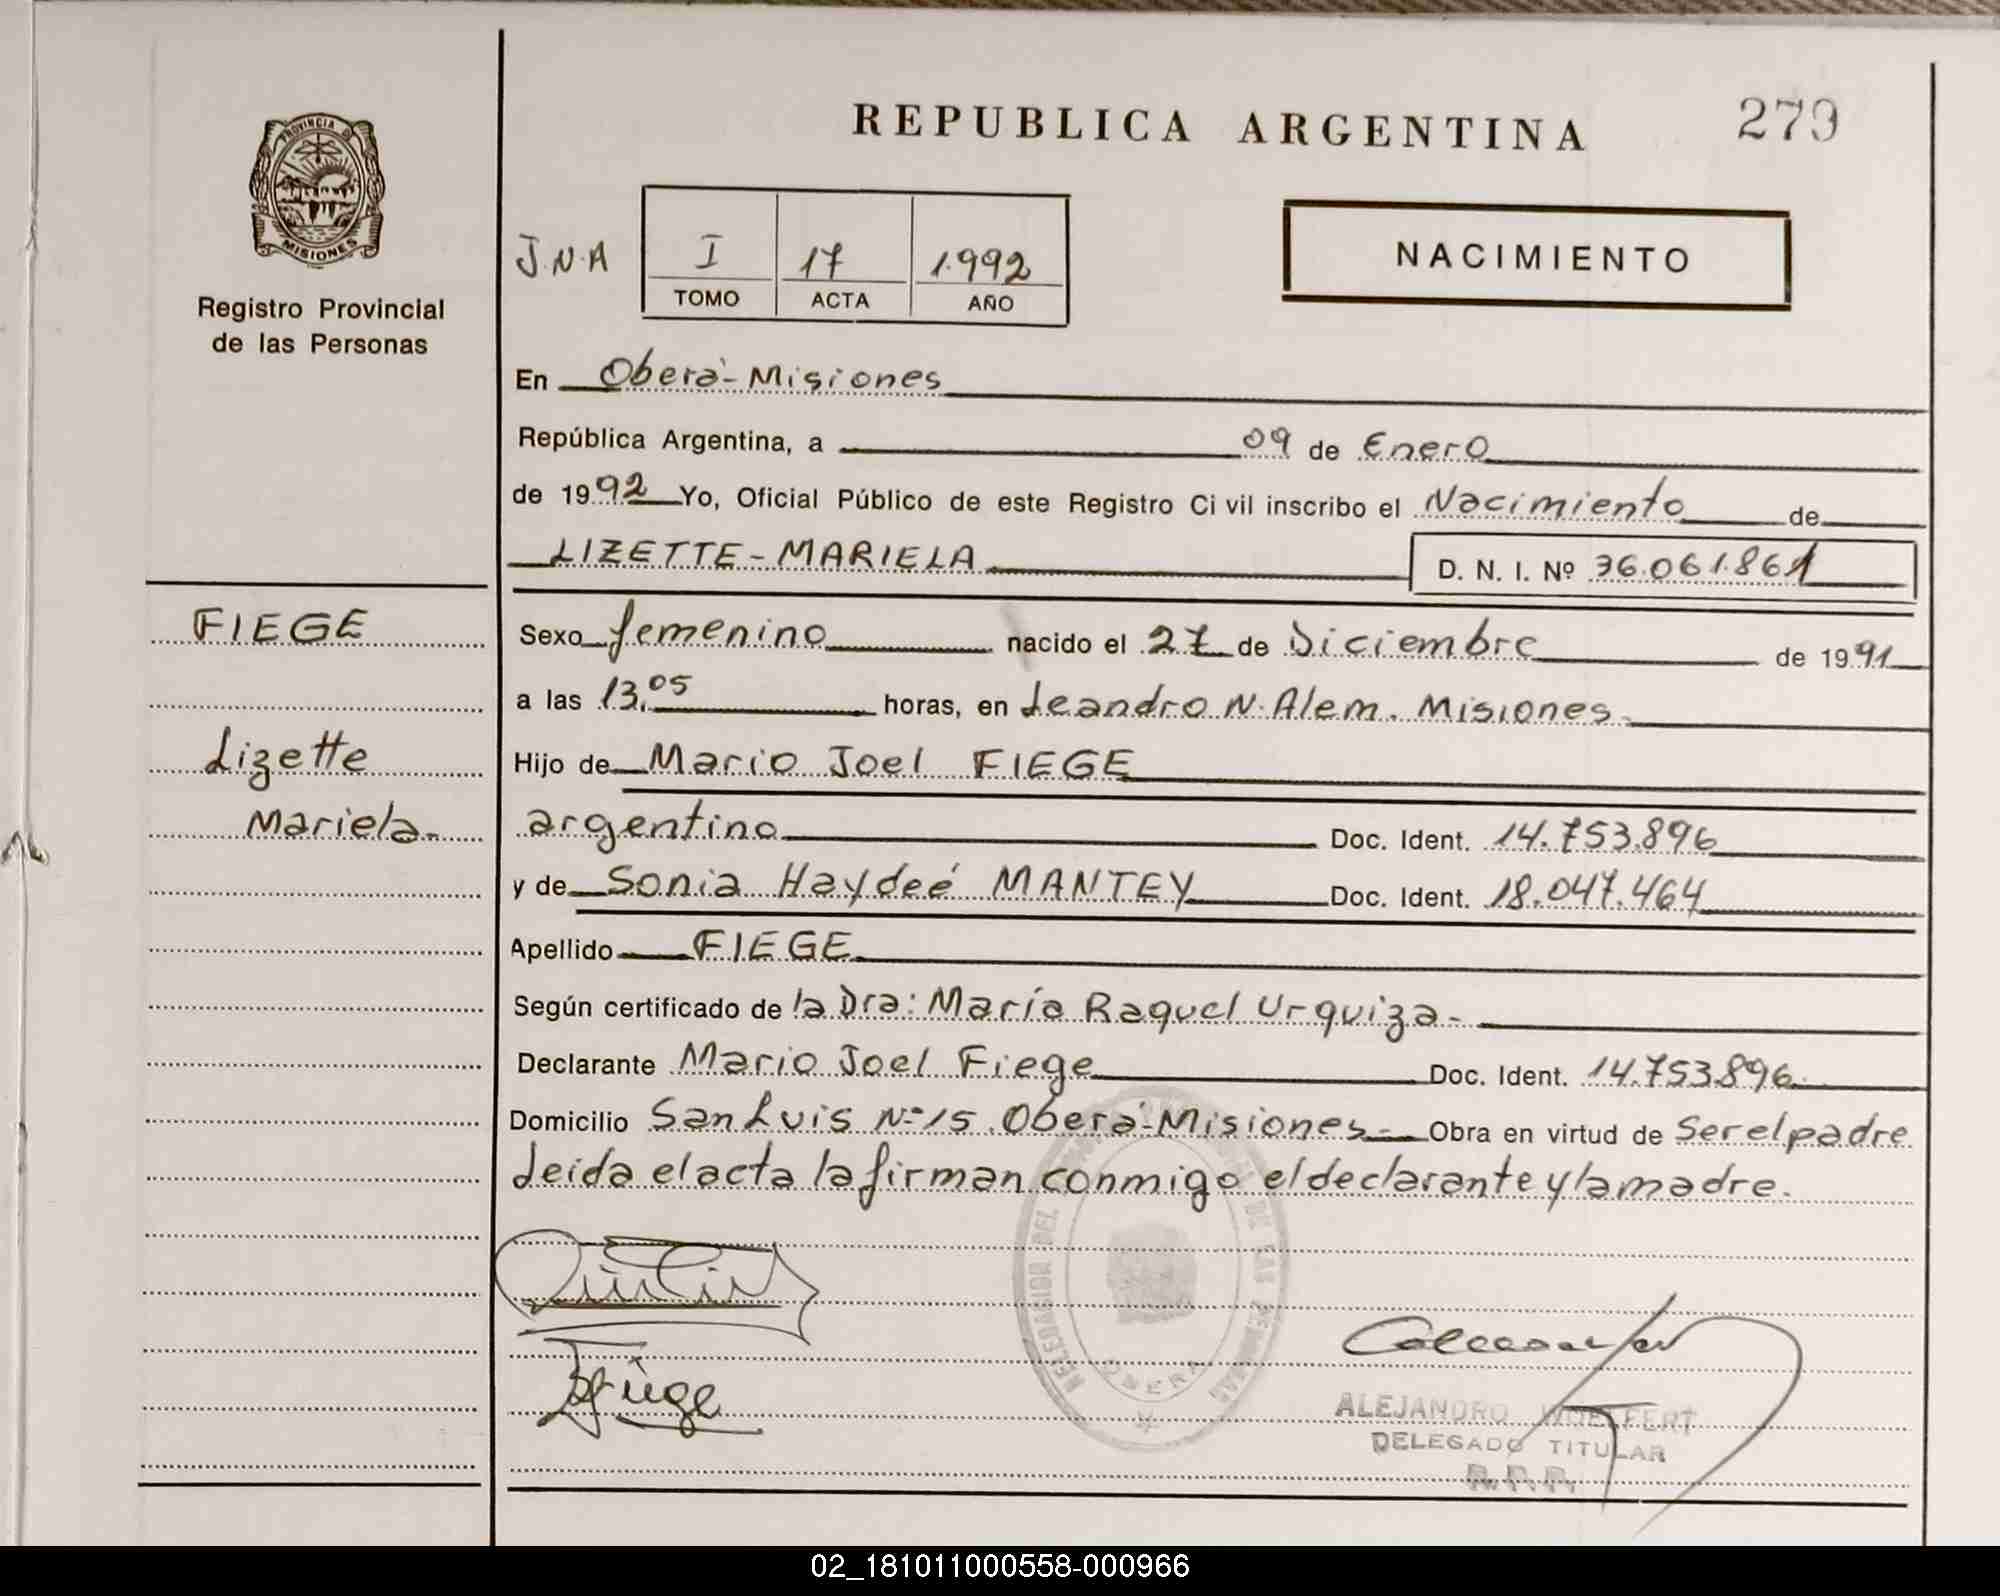 REPUBLICA ARGENTINA
279
PROVINCIA D
MISIONES
Registro Provincial
de las Personas
J.N.A
I 17 1.992
TOMO ACTA AÑO
NACIMIENTO
En Oberá-Misiones
República Argentina, a 09 de Enero
de 1992 Yo, Oficial Público de este Registro Civil inscribo el Nacimiento de
LIZETTE-MARIELA D. N. I. Nº 36.061.861
FIEGE
Lizette
Mariela.
Sexo femenino nacido el 27 de Diciembre de 1991
a las 13,05 horas, en Leandro N. Alem. Misiones.
Hijo de Mario Joel FIEGE
argentino Doc. Ident. 14.753.896
y de Sonia Haydeé MANTEY Doc. Ident. 18.047.464
Apellido FIEGE
Según certificado de la Dra: María Raquel Urquiza-
Declarante Mario Joel Fiege Doc. Ident. 14.753.896.
Domicilio San Luis Nº 15. Oberá-Misiones- Obra en virtud de Ser el padre
Leída el acta la firman conmigo el declarante y la madre.
DE LAS PERSONAS
OBERA
ALEJANDRO WOELFERT
DELEGADO TITULAR
R.P.P.
02_181011000558-000966